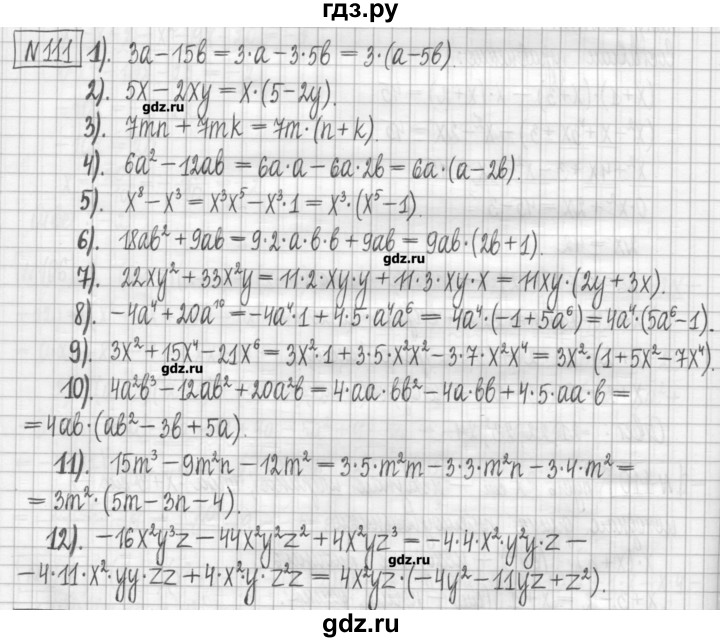 гдз.ру
N111 1). 3a-15b=3·a-3·5b=3·(a-5b).
2). 5x-2xy=x·(5-2y).
gdz.ru
3). 7mn+7mk=7m·(n+k).
4). 6a²-12ab=6a·a-6a·2b=6a·(a-2b).
5). x⁸-x³=x³x⁵-x³·1=x³·(x⁵-1).
6). 18ab²+9ab=9·2·a·b·b+9ab=9ab·(2b+1).
gdz.ru
7). 22xy²+33x²y=11·2·xy·y+11·3·xy·x=11xy·(2y+3x).
8). -4a⁴+20a¹⁰=-4a⁴·1+4·5·a⁴a⁶=4a⁴·(-1+5a⁶)=4a⁴·(5a⁶-1).
9). 3x²+15x⁴-21x⁶=3x²·1+3·5·x²x²-3·7·x²x⁴=3x²·(1+5x²-7x⁴).
gdz.ru
10). 4a²b³-12ab²+20a²b=4·aa·bb²-4a·bb+4·5·aa·b=
=4ab·(ab²-3b+5a).
11). 15m³-9m²n-12m²=3·5·m²m-3·3·m²n-3·4·m²=
=3m²·(5m-3n-4).
12). -16x²y³z-44x²y²z²+4x²yz³=-4·4·x²·y²y·z-
gdz.ru
-4·11·x²·yy·zz+4·x²·y·z²z=4x²yz·(-4y²-11yz+z²).
gdz.ru